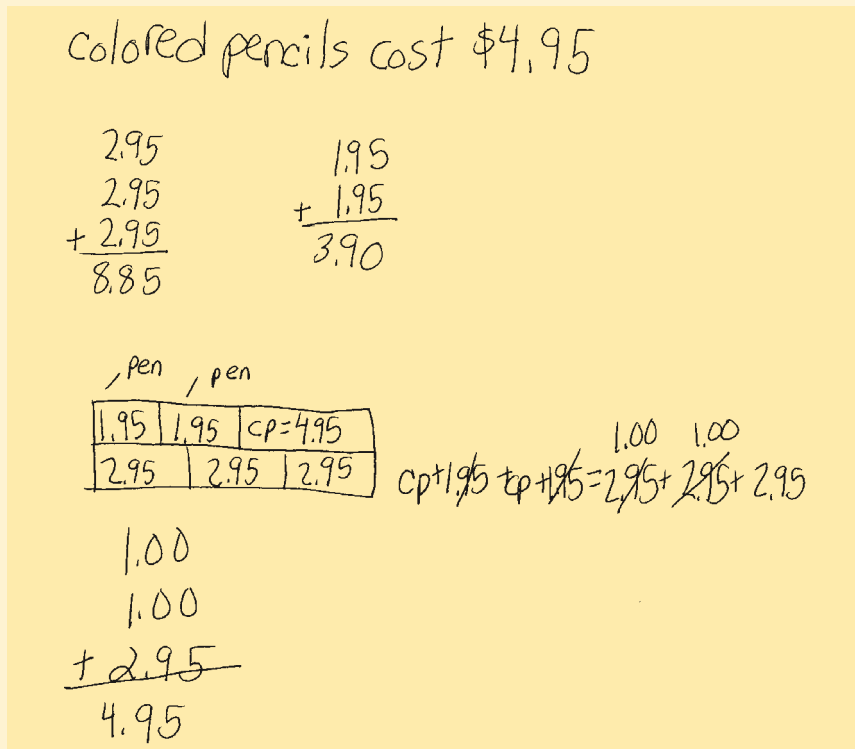 colored pencils cost $4.95
2.95
2.95
+ 2.95
8.85
1.95
+ 1.95
3.90
pen pen
1.95 1.95 cp=4.95
2.95 2.95 2.95
1.00 1.00
cp+1.95 +cp+1.95=2.95+2.95+2.95
1.00
1.00
+ 2.95
4.95